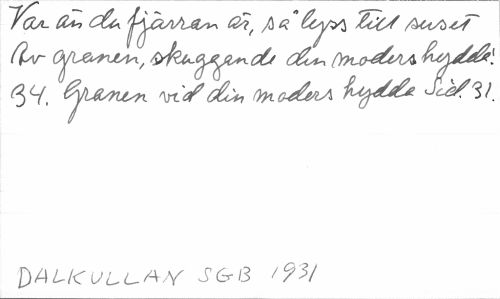 Var än du fjärran är, så lyss till suset
Av granen, skuggande din moders hydda!
34. Granen vid din moders hydda Sid. 31.
DALKULLAN SGB 1931